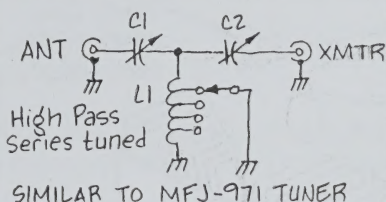 C1
C2
ANT
XMTR
L1
High Pass
Series tuned
SIMILAR TO MFJ-971 TUNER